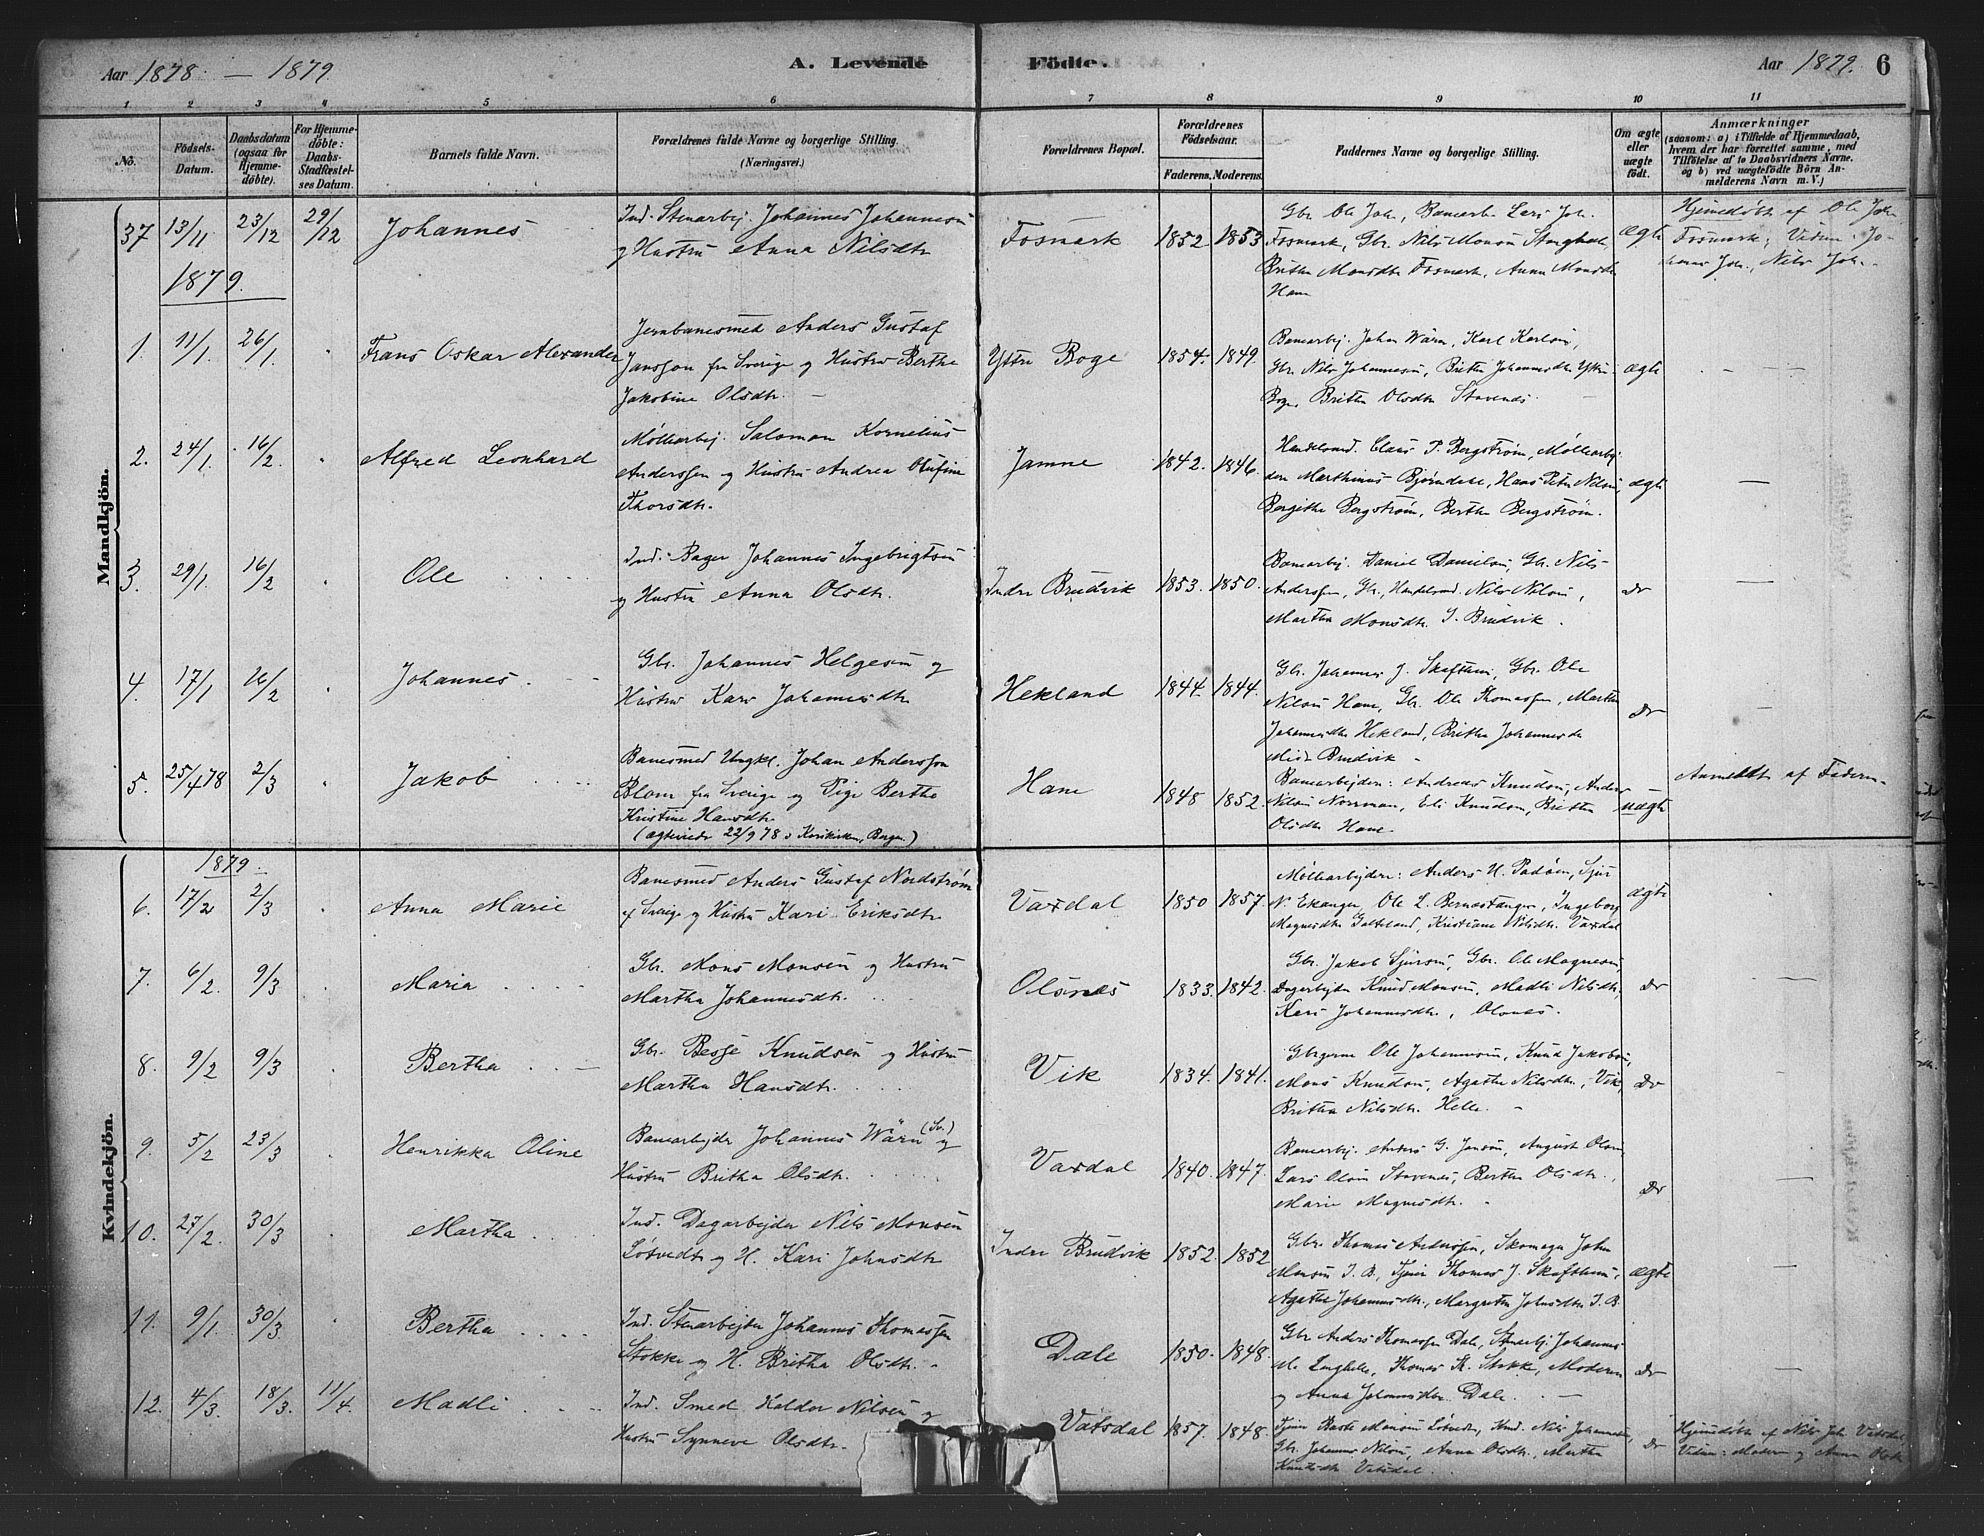 Aar 1878 — 1879. A. Levende Födte. Aar 1879. 6
1 2 3 4 5 6 7 8 9 10 11
No.
Födsels-
Datum.
Daabsdatum
(ogsaa for
Hjemme-
döbte).
For Hjemme-
döbte:
Daabs-
Stadfæstel-
ses Datum.
Barnets fulde Navn.
Forældrenes fulde Navne og borgerlige Stilling.
(Næringsvei.)
Forældrenes Bopæl.
Forældrenes
Födselsaar.
Faderens. Moderens.
Faddernes Navne og borgerlige Stilling.
Om ægte
eller
uægte
födt.
Anmærkninger
(saasom: a) i Tilfælde af Hjemmedaab,
hvem der har forrettet samme, med
Tilföielse af to Daabsvidners Navne.
og b) ved uægtefödte Börn An-
melderens Navn m. V.)
Mandkjön.
37 13/11 23/12 29/12 Johannes
Ind. Stenarbej. Johannes Johannesen
og Hustru Anna Nilsdtr
Fosmark 1852 1853
Gbr. Ole Joh., Banearb. Lars Joh.
Fosmark, Gbr. Nils Monsen
Britha Monsdtr Fosmark, Anna Monsdtr
Hane
ægte
Hjemmedøbt af Ole Joh.
Fosmark; Vidner: Jo-
hannes Joh., Nils Joh.
1879.
1. 11/1 26/1 Frans Oskar Alexander
Jernbanesmed Anders Gustaf
Jansson fra Sverige og Hustru Berthe
Jakobine Olsdtr.
Yttre Boge 1854. 1849.
Banearbej. Johan Wärn, Karl Karlson,
Gbr. Nils Johannesen, Britha Johannesdtr Yttre
Boge, Britha Olsdtr Stavenæs
ægte
2. 24/1 16/2 Alfred Leonhard
Møllearbej. Saloman Kornelius
Anderssen og Hustru Andrea Olufine
Thorsdtr.
Jamne 1842. 1846.
Handelsmd. Claus P. Bergstrøm, Møllearbej-
dere Marthinus Bjørndal, Hans Peter Nilsen,
Bergithe Bergstrøm, Berthe Bergstrøm.
ægte
3. 29/1 16/2 Ole
Ind. Bager Johannes Ingebrigtsen
og Hustru Anna Olsdtr.
Indre Brudvik 1853. 1850.
Banearbej. Daniel Danielsen, Gbr. Nils
Anderssen, Gbr., Handelsmd. Nils Nilsen,
Martha Monsdtr. I. Brudvik.
Do
4. 17/1 16/2 Johannes
Gbr. Johannes Helgesen og
Hustru Kari Johannesdtr
Hekland 1844. 1844.
Gbr. Johannes J. Skaftun, Gbr. Ole
Nilsen Hane, Gbr. Ole Thomassen, Martha
Johannesdtr Hekland, Britha Johannesdtr
Brudvik
Do
5. 25/4 78 2/3 Jakob
Banesmed Ungkl. Johan Andersson
Blom fra Sverige og Pige Berthe
Kristine Hansdtr
(ægteviede 22/9 78 i Korskirken, Bergen.)
Hane 1848 1852.
Banearbejdere: Andreas Knudsen, Anders
Nilsen Norrman, Eli Knudsen, Britha
Olsdtr Hane
uægte
Anmeldt af Faderen
Kvindekjön.
1879
6. 17/2 2/3 Anna Marie
Banesmed Anders Gustaf Nordstrøm
af Sverige og Hustru Kari Eriksdtr
Vaxdal 1850 1857.
Møllearbejdere: Anders H. Padøen, Sjur
N. Ekanger, Ole L. Bernæstanger, Ingeborg
Magnesdtr Galteland, Kristiane Nilsdtr. Vaxdal
ægte
7. 6/2. 9/3 Maria
Gbr. Mons Monsen og Hustru
Martha Johannesdtr.
Olsnæs 1833. 1842.
Gbr. Jakob Sjursen, Gbr. Ole Magnesen,
Dagarbejder Knud Monsen, Madli Nilsdtr.
Kari Johannesdtr., Olsnæs.
Do
8. 9/2 9/3 Bertha
Gbr. Besse Knudsen og Hustru
Martha Hansdtr.
Vik 1834. 1841.
Gbrgerne Ole Johannesen, Knud Jakobsen,
Mons Knudsen, Agatha Nilsdtr., Vik,
Britha Nilsdtr. Helle.
Do
9. 5/2 23/3 Henrikka Oline
Banearbejder Johannes Wärn (Sv.) og
Hustru Britha Olsdtr.
Vaxdal 1840. 1847.
Banearbej. Anders G. Jansen, August Olsen
Lars Olsen Stavenæs, Bertha Olsdtr.,
Marie Magnesdtr.
Do
10. 27/2. 30/3 Martha
Ind. Dagarbejder Nils Monsen
Løtvedt og H. Kari Johnsdtr
Indre Brudvik 1852. 1852
Gbr. Thomas Anderssen, Skomager John
Monsen I. B., Tjener Thomas J. Skaftun,
Agatha Johannesdtr., Margretha Johnsdtr I. B.
ægte
11. 9/1 30/3 Bertha
Ind. Stenarbejder Johannes Thomassen
Stokke og H. Britha Olsdtr.
Dale 1850. 1848.
Gbr. Anders Thomassen Dale, Stenarbej. Johannes
Thomas Th. Stokke, Moderen
og Anna Johannesdtr Dale.
Do
12. 4/3 18/3. 11/4 Madli
Ind. Smed Haldor Nilsen og
Hustru Synneve Olsdtr.
Vatsdal 1857. 1848.
Tjener Monsen Løtvedt, Knd. Nils Johannesen,
Gbr. Johannes Nilsen, Anna Olsdtr, Martha
Knudsdtr Vatsdal.
Do
Hjemmedøbt af Nils Joh. Vatsdal
Vidner: Moderen og Anna Olsdtr